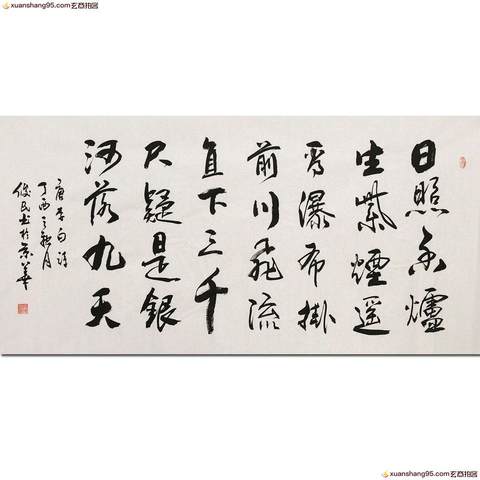 xuanshang95.com
日照香爐
生紫煙遥
看瀑布掛
前川飛流
直下三千
尺疑是銀
河落九天
唐李白詩
丁酉之秋月
俊民书於京華
xuanshang95.com